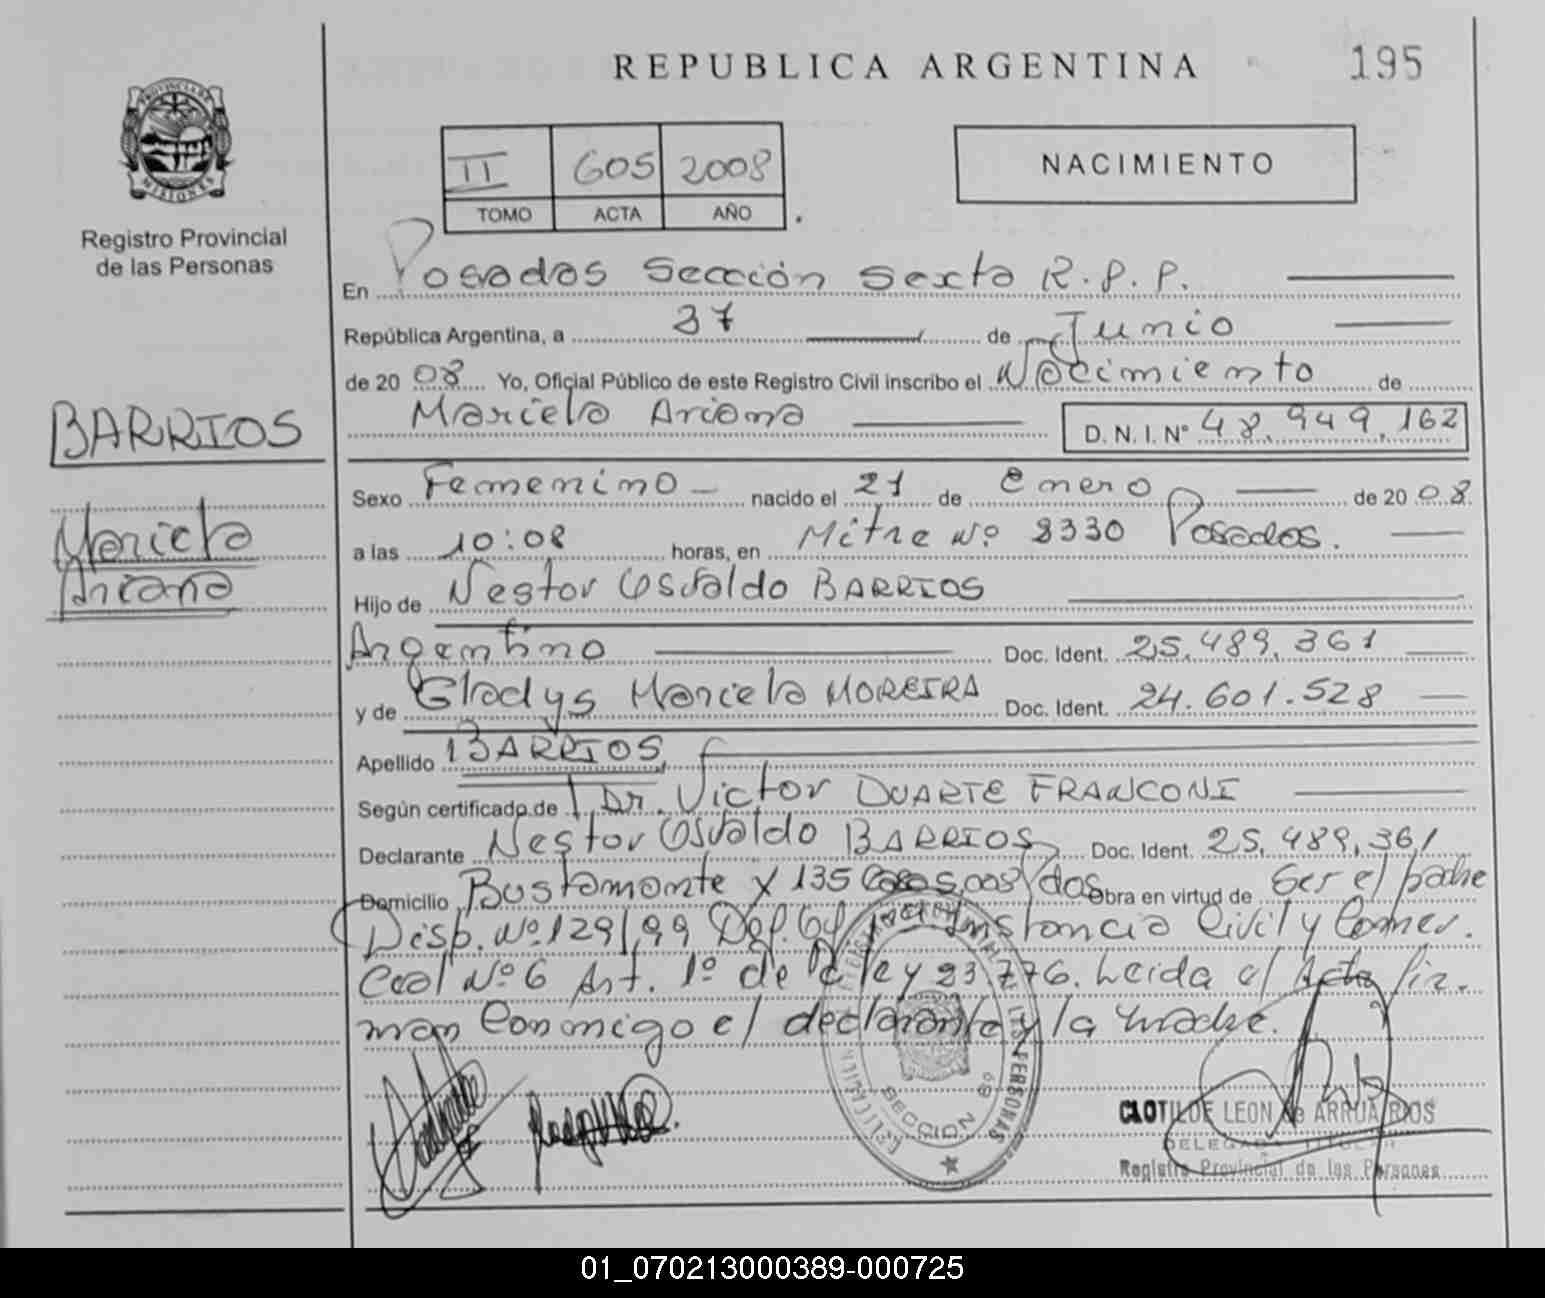 REPUBLICA ARGENTINA
195
PROVINCIA DE MISIONES
Registro Provincial
de las Personas
II 605 2008
TOMO ACTA AÑO
NACIMIENTO
En Posadas Sección Sexta R.P.P.
República Argentina, a 37 de Junio
de 2008 Yo, Oficial Público de este Registro Civil inscribo el Nacimiento de
Mariela Ariana D.N.I. Nº 48.949.162
BARRIOS
Mariela
Ariana
Sexo Femenino - nacido el 21 de Enero de 2008
a las 10:08 horas, en Mitre Nº 2330 Posadas.
Hijo de Nestor Osvaldo BARRIOS
Argentino Doc. Ident. 25.489.361
y de Gladys Mariela MOREIRA Doc. Ident. 24.601.528
Apellido BARRIOS
Según certificado de Dr. Victor DUARTE FRANCONI
Declarante Nestor Osvaldo BARRIOS Doc. Ident. 25.489.361
Domicilio Bustamante x 135 Casas Obra en virtud de Ser el padre
Disp. Nº 129/99 Def. Instancia Civil y Comer.
cial Nº 6 Art. 1º de la ley 23.776. Leida el Acta fir.
man conmigo el declarante y la madre.
SECCION 6º
CLOTILDE LEON de ARRUA RIOS
DELEGADA TITULAR
Registro Provincial de las Personas
01_070213000389-000725